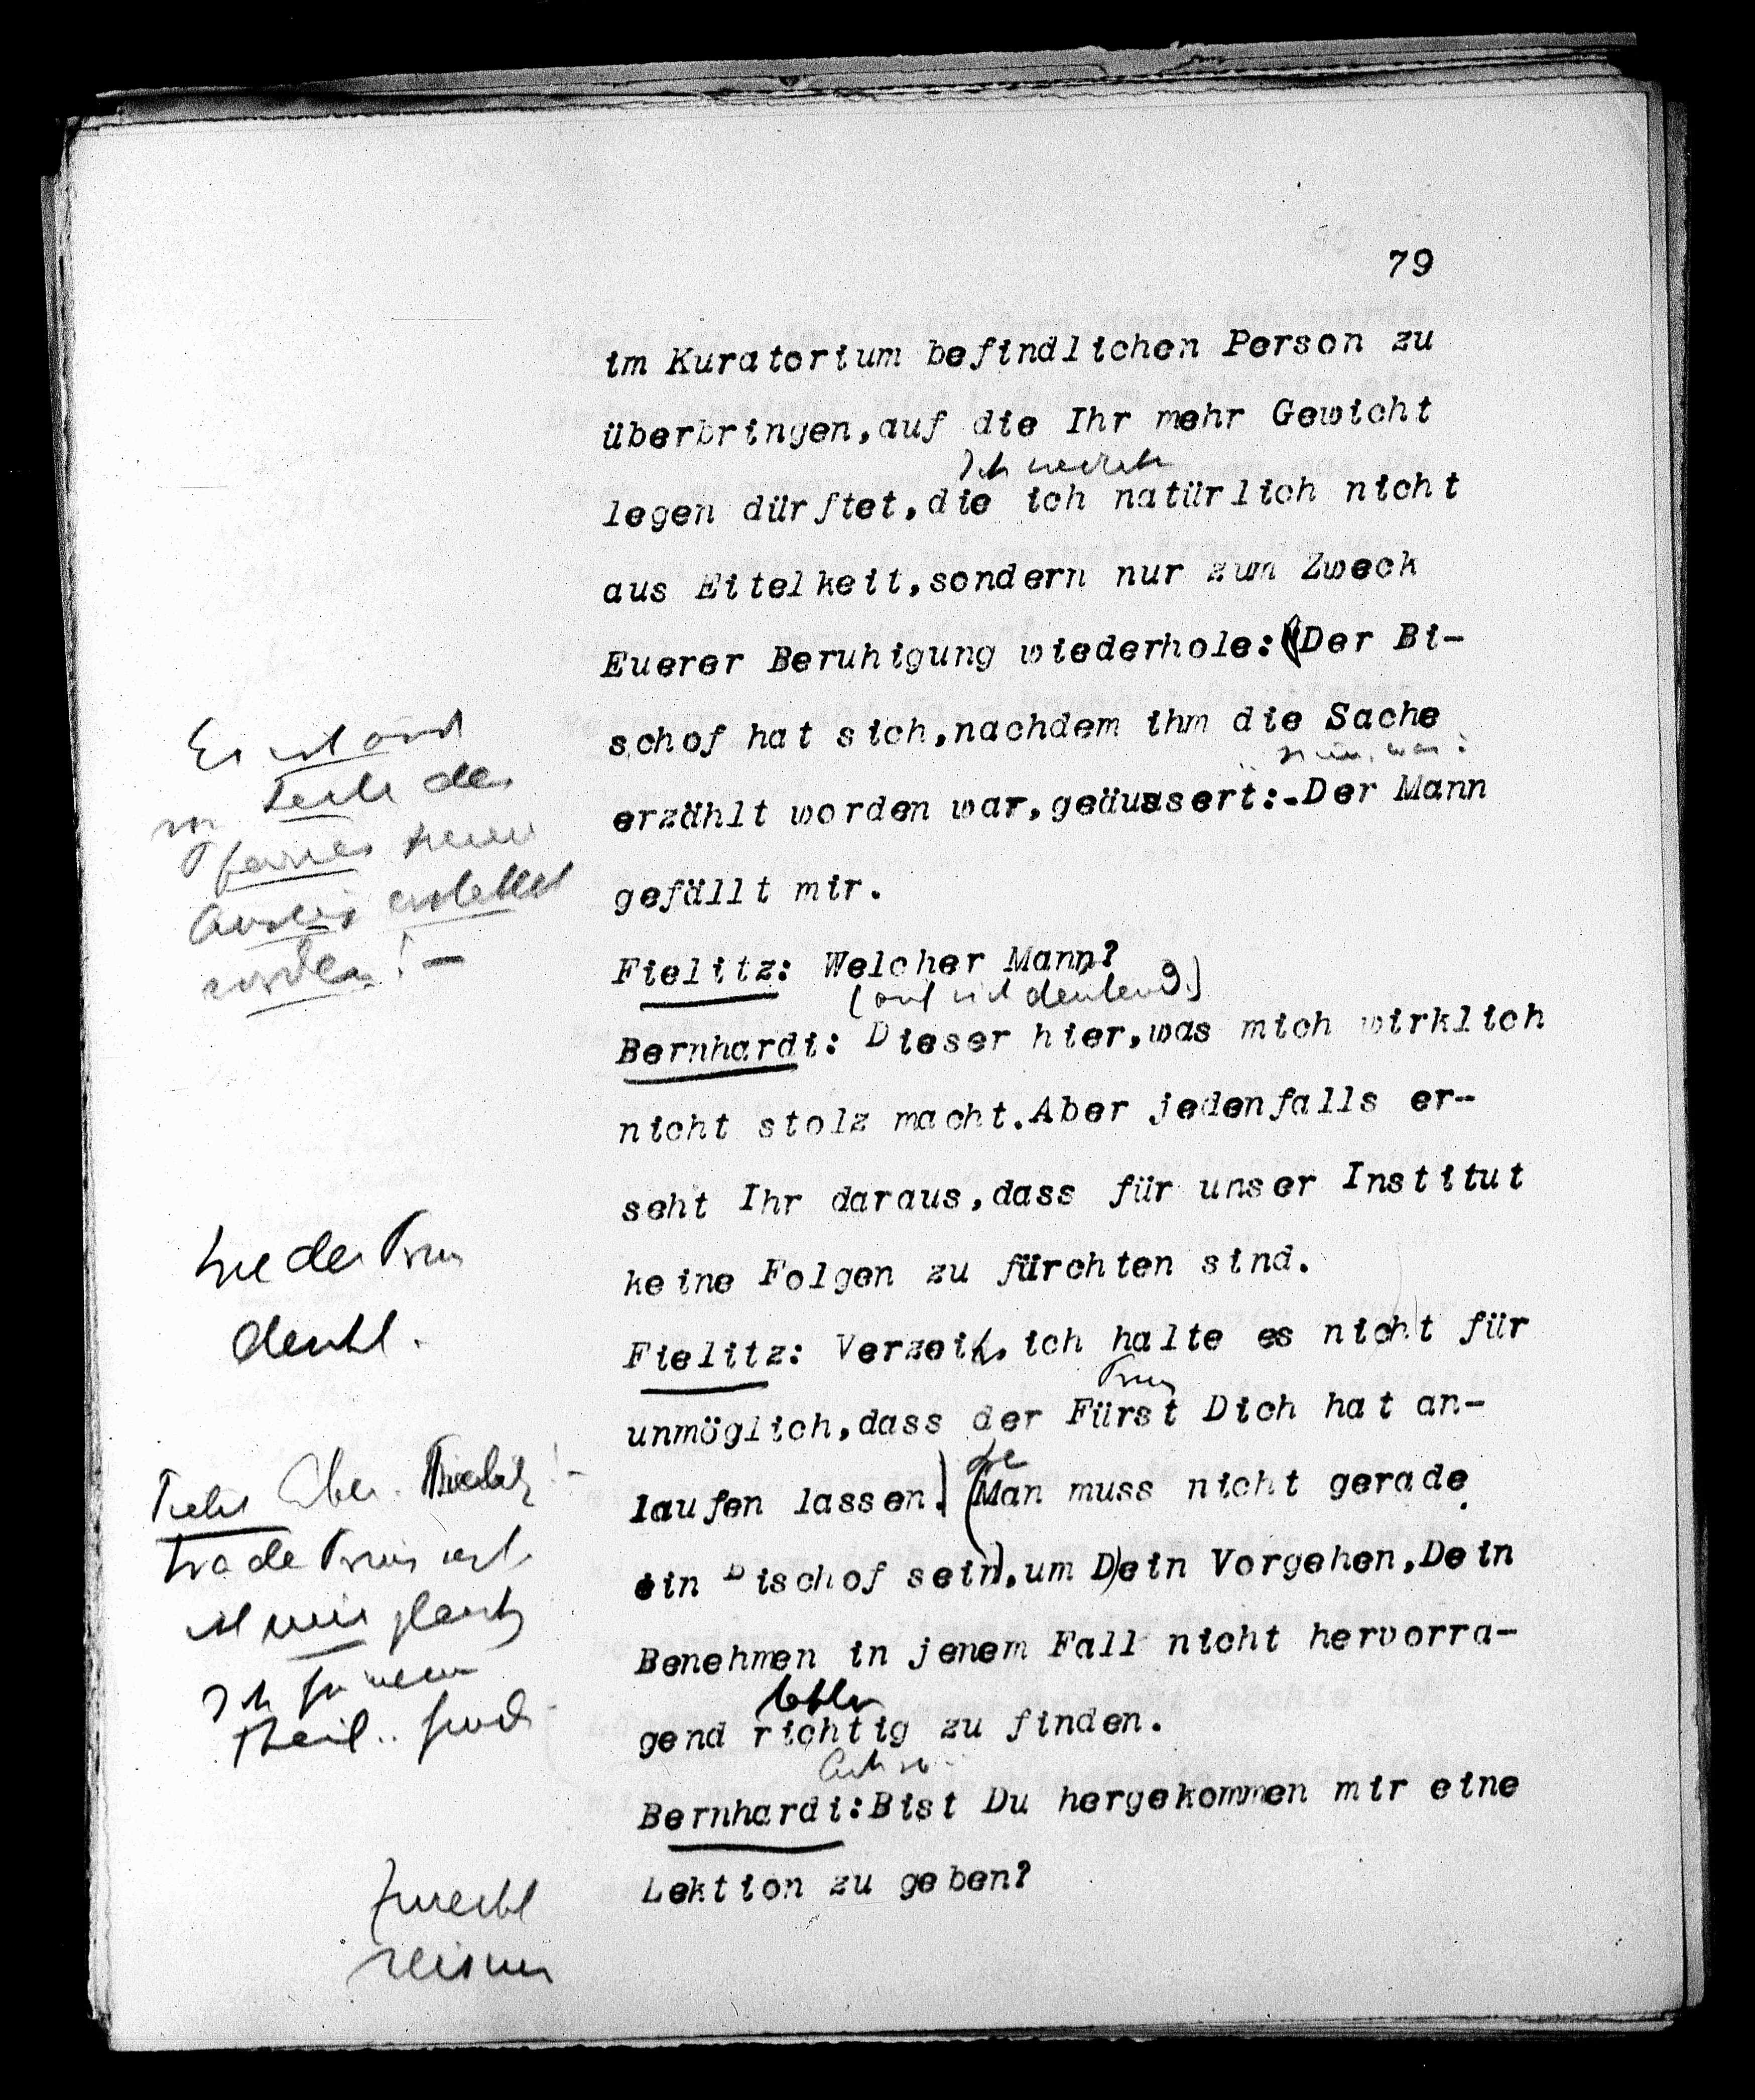 79
im Kuratorium befindlichen Person zu
überbringen,auf die Ihr mehr Gewicht
Ich
legen dürftet,die ich natürlich nicht
aus Eitelkeit,sondern nur zum Zweck
Euerer Beruhigung wiederhole:(Der Bi-
schof hat sich,nachdem ihm die Sache
erzählt worden war,geäussert:-Der Mann
gefällt mir.
Es ist auch
der
worden! –
Fielitz: Welcher Mann?
(auf sich deutend)
Bernhardi: Dieser hier,was mich wirklich
nicht stolz macht.Aber jedenfalls er--
seht Ihr daraus,dass für unser Institut
keine Folgen zu fürchten sind.
wie der Prinz
denkt.
Fielitz: Verzeih,ich halte es nicht für
Prinz
unmöglich,dass der Fürst Dich hat an-
laufen lassen.) (Man muss nicht gerade
ein Bischof sein),um D)ein Vorgehen,Dein
Benehmen in jenem Fall nicht hervorra-
gend richtig zu finden.
Aber Fielitz! –
ist mir gleich
Ich für meinen
Theil..
Ach so
Bernhardi:Bist Du hergekommen mir eine
Lektion zu geben?